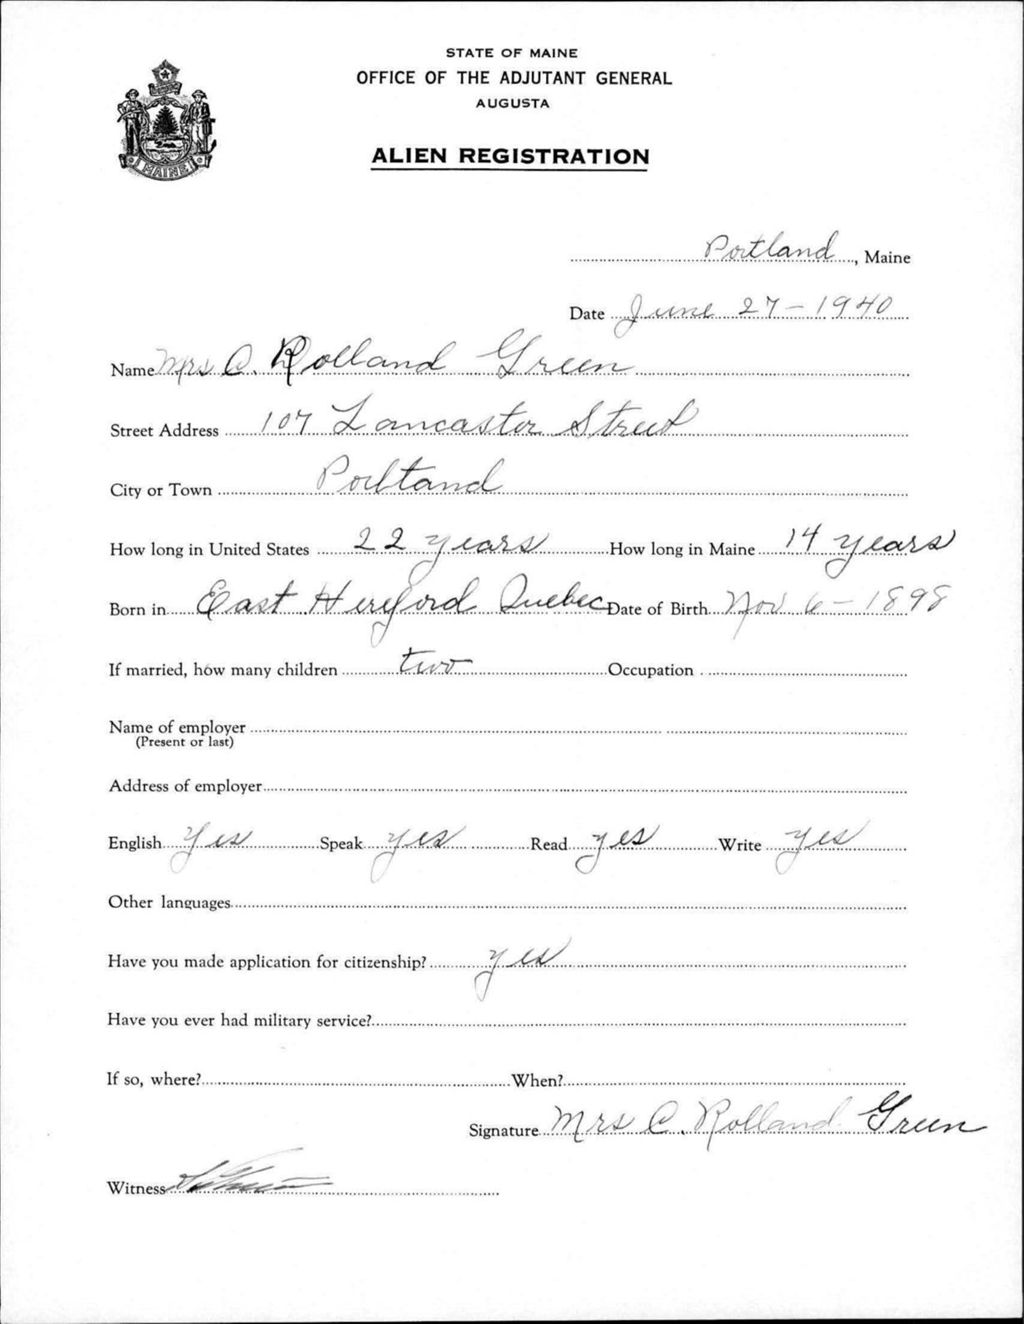 STATE OF MAINE
OFFICE OF THE ADJUTANT GENERAL
AUGUSTA
MAINE
ALIEN REGISTRATION
Portland, Maine
Date June 27-1940
Name Mrs C. Rolland Green
Street Address 107 Lancaster Street
City or Town Portland
How long in United States 22 years How long in Maine 14 years
Born in East Hereford Quebec Date of Birth Nov 6-1898
If married, how many children two Occupation
Name of employer
(Present or last)
Address of employer
English Yes Speak yes Read yes Write yes
Other languages
Have you made application for citizenship? yes
Have you ever had military service?
If so, where? When?
Signature Mrs C. Rolland Green
Witness